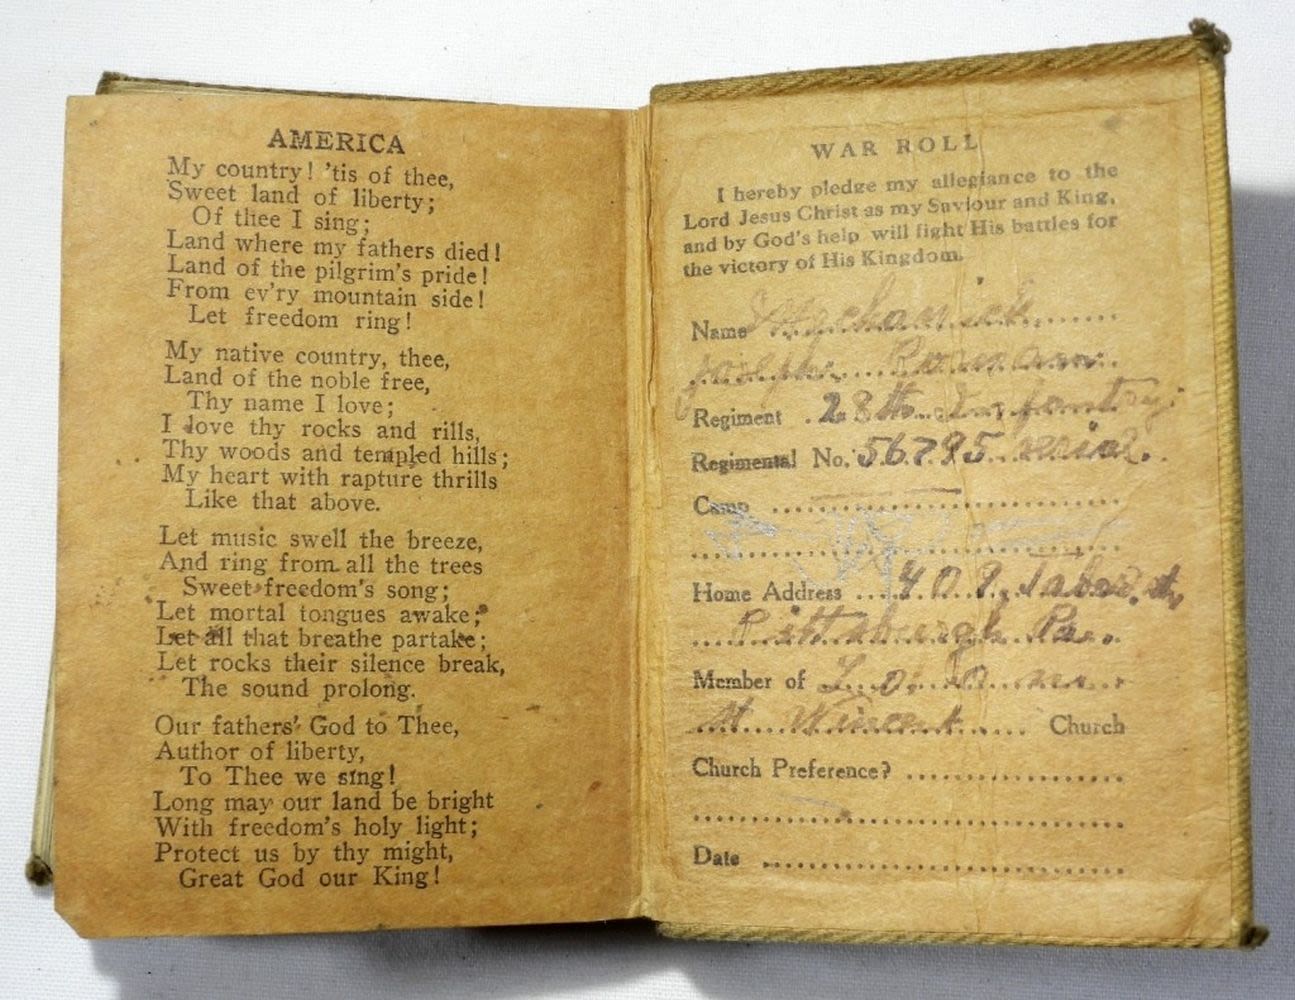 AMERICA
My country! 'tis of thee,
Sweet land of liberty;
Of thee I sing;
Land where my fathers died!
Land of the pilgrim's pride!
From ev'ry mountain side!
Let freedom ring!
My native country, thee,
Land of the noble free,
Thy name I love;
I love thy rocks and rills,
Thy woods and templed hills;
My heart with rapture thrills
Like that above.
Let music swell the breeze,
And ring from all the trees
Sweet freedom's song;
Let mortal tongues awake;
Let all that breathe partake;
Let rocks their silence break,
The sound prolong.
Our fathers' God to Thee,
Author of liberty,
To Thee we sing!
Long may our land be bright
With freedom's holy light;
Protect us by thy might,
Great God our King!
WAR ROLL
I hereby pledge my allegiance to the
Lord Jesus Christ as my Saviour and King,
and by God's help will fight His battles for
the victory of His Kingdom.
Name Mechanick
Joseph Roman
Regiment 28th Infantry
Regimental No. 56795 serial
Camp
Home Address 409 Tabor st,
Pittsburgh Pa.
Member of
st Vincent Church
Church Preference?
Date